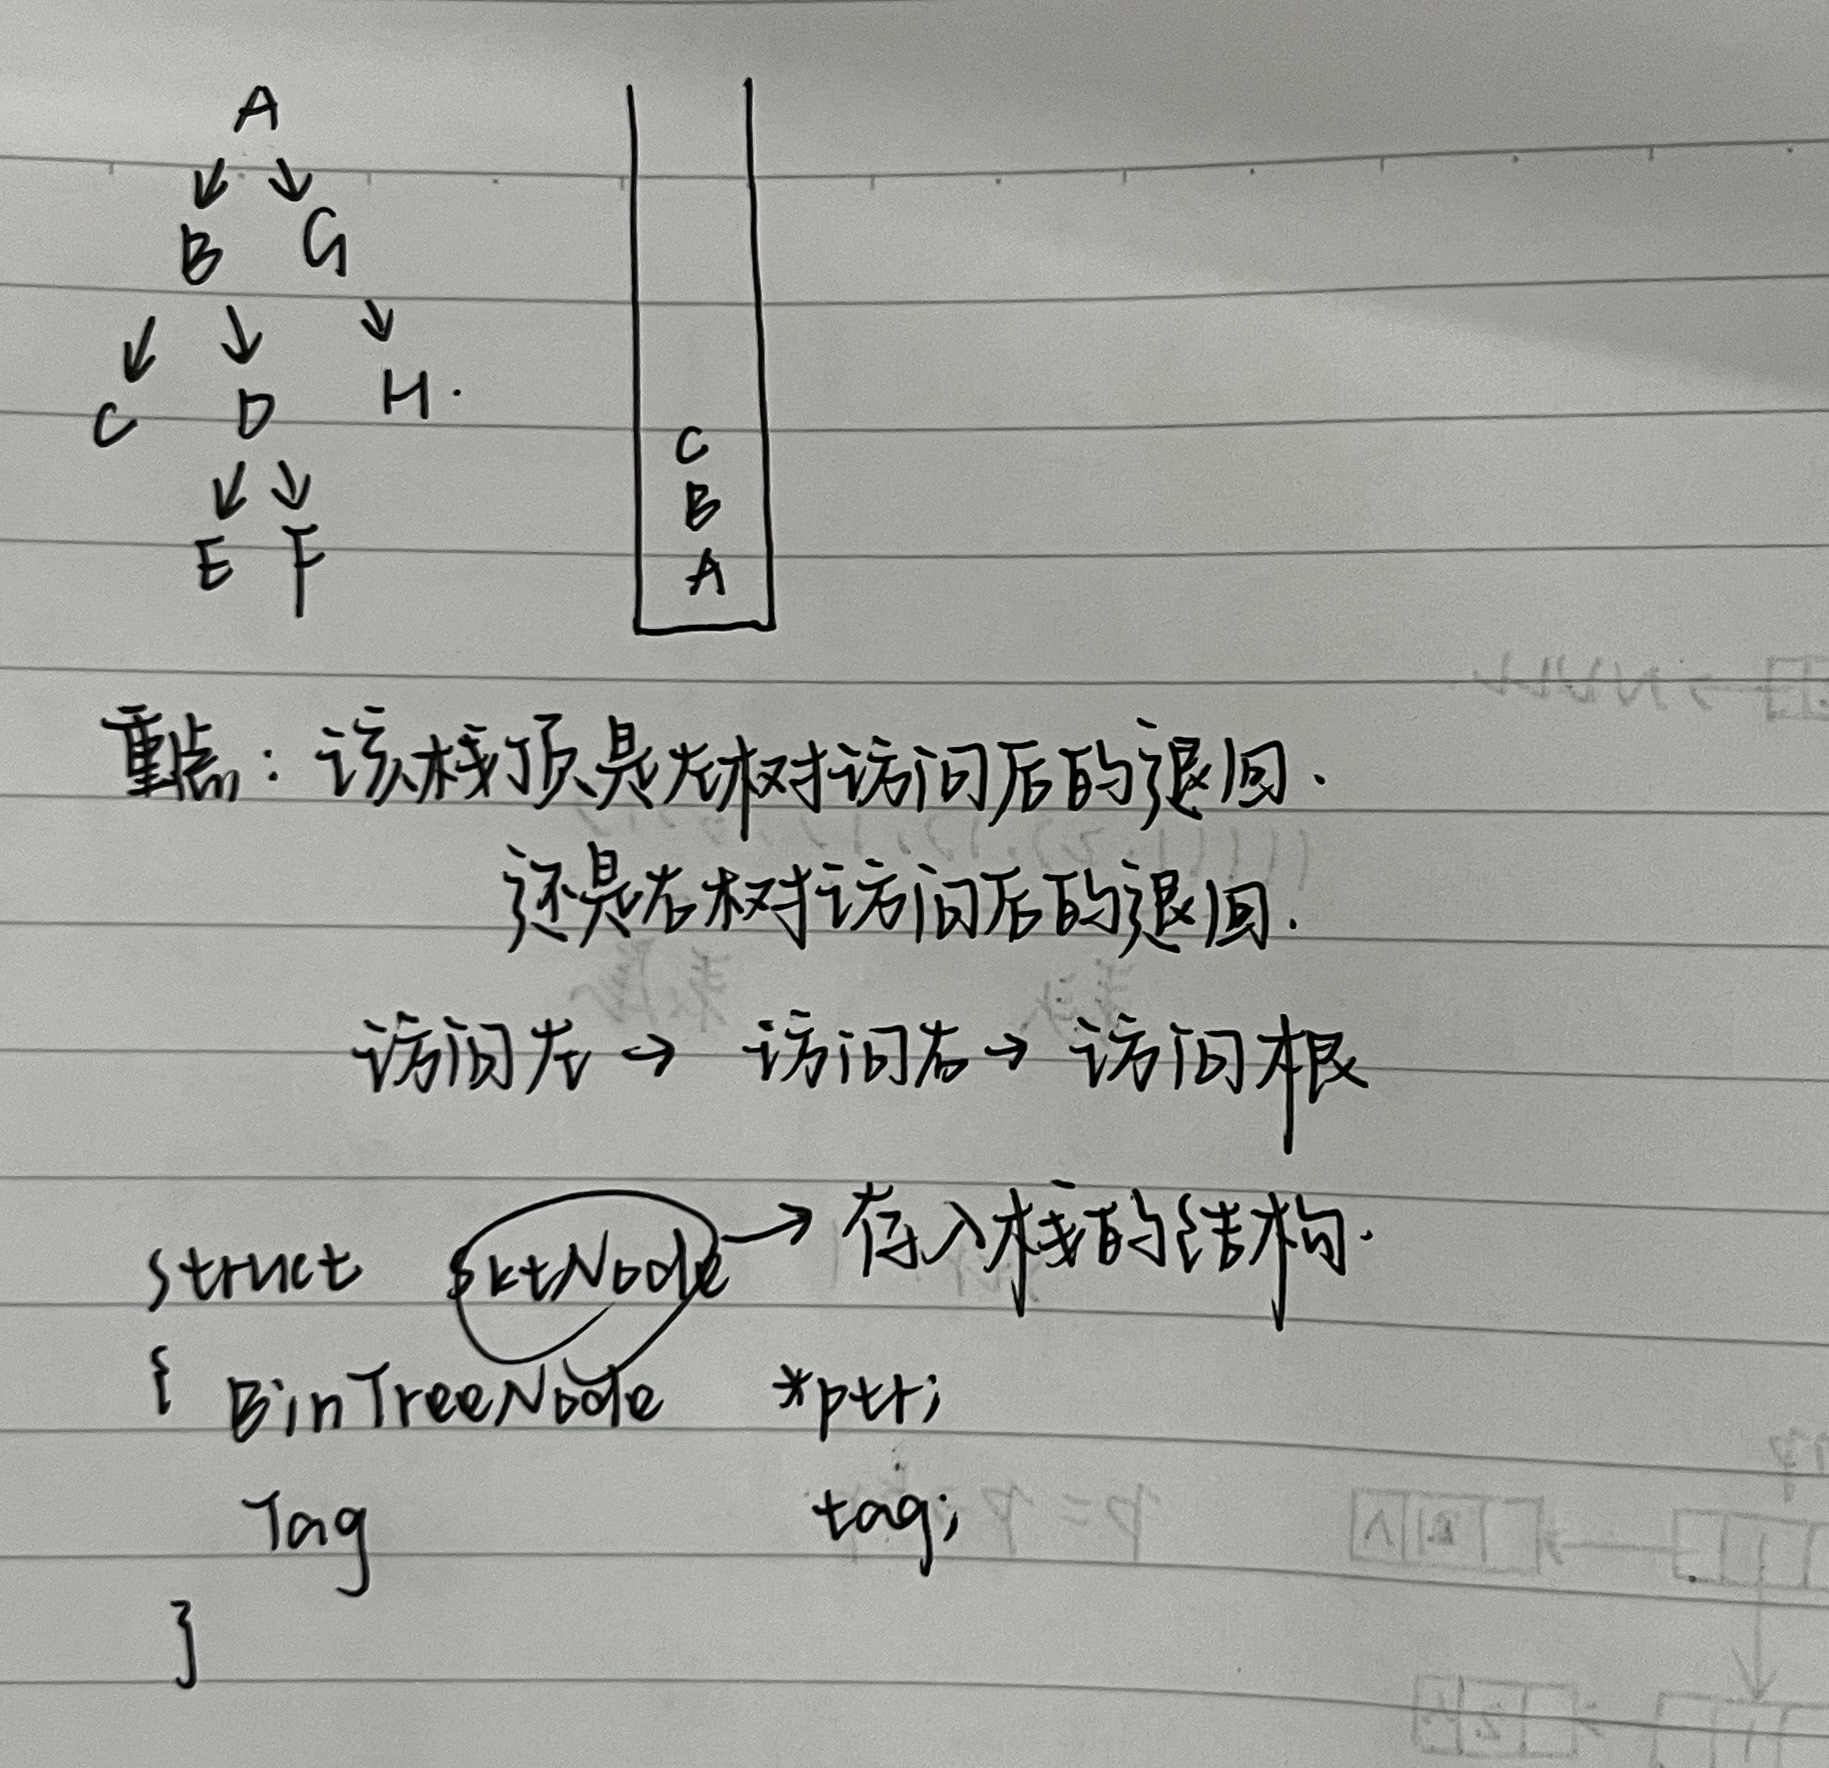 A
B G
C D H.
E F
C
B
A
重点：该栈顶是左树访问后的退回.
还是右树访问后的退回.
访问左→ 访问右→ 访问根
struct SktNode→存入栈的结构.
{ BinTreeNode *ptr;
Tag tag;
}